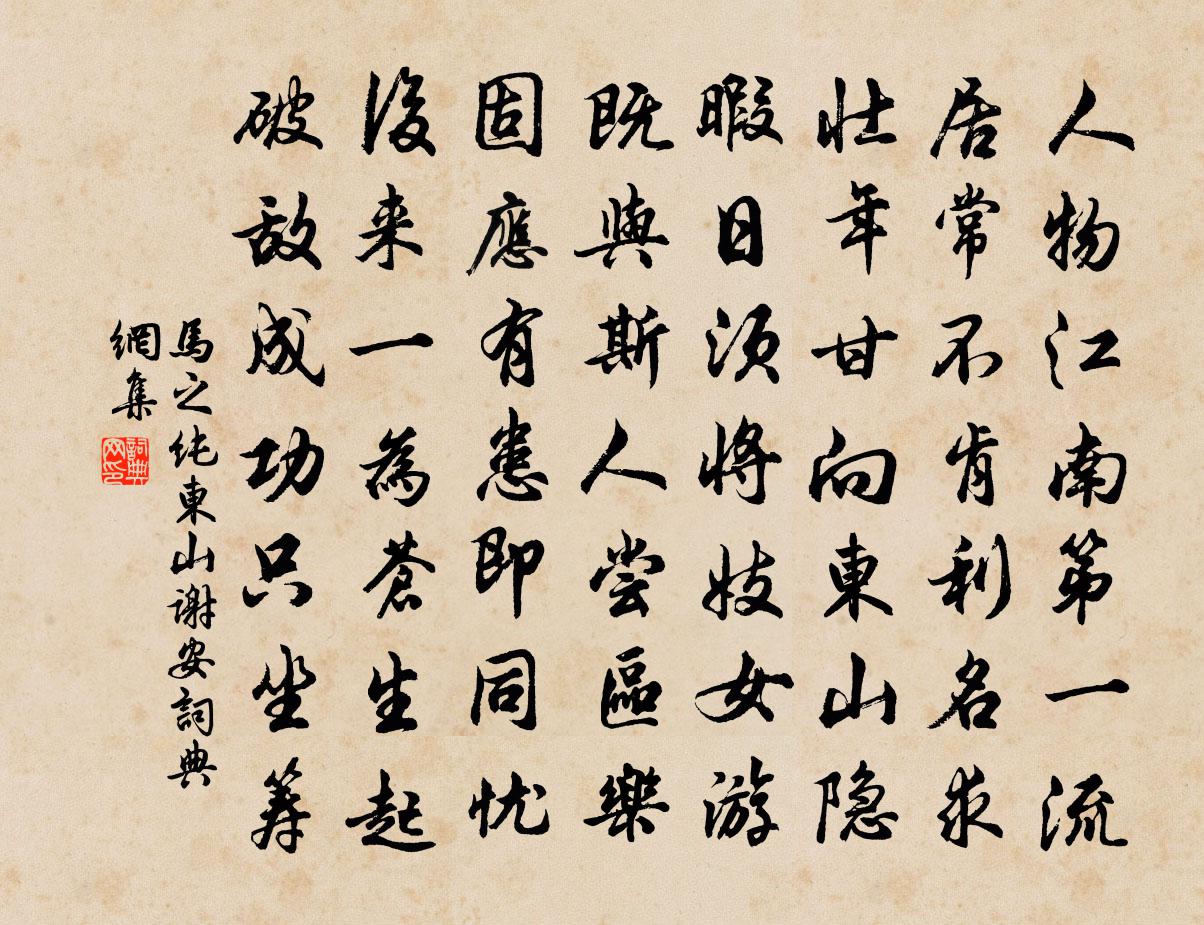 人物江南第一流
居常不肯利名求
壮年甘向東山隐
暇日须将妓女游
既與斯人尝區樂
固應有患即同忧
後来一為蒼生起
破敌成功只坐筹
馬之纯東山謝安詞典
網集
詞典網印